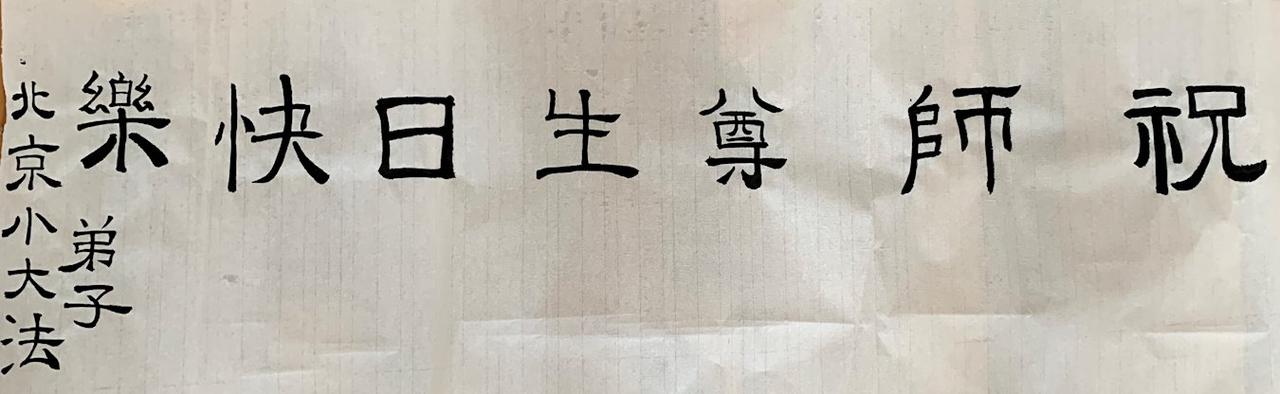 祝師尊生日快樂
北京小大法
弟子